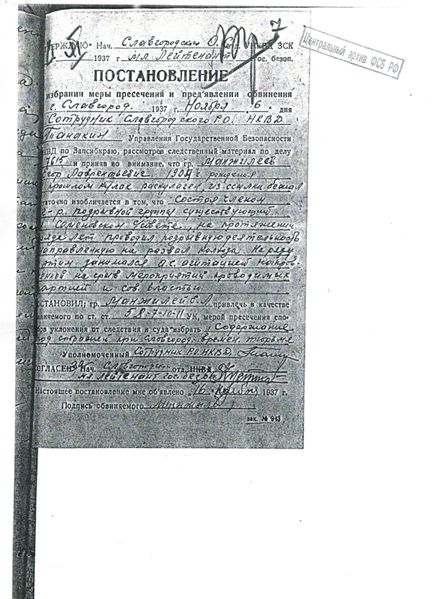 Центральный архив ФСБ РФ
7
Нач. Славгородского УНКВД ЗСК
1937 мл. Лейтенант Гос. безоп.
ПОСТАНОВЛЕНИЕ
избрании меры пресечения и предъявлении обвинения
г. Славгород, 1937 г. Ноября 6 дня
Сотрудник Славгородского РО. НКВД
Управления Государственной Безопасности
по Запсибкраю, рассмотрев следственный материал по делу
7615 и приняв во внимание, что гр. Манжилеев
Лаврентьевич 1904 г. рождения
прошлом кулак раскулачен из ссылки бежал
достаточно изобличается в том, что Состоя членом
к-р. группы существующей
Совете, на протяжении
лет проводил подрывную деятельность
направленную на развал колхоза. На ряду
с этим занимался а.с. агитацией
на срыв мероприятий проводимых
партией и сов. властью.
гр. Манжилеев привлечь в качестве
обвиняемого по ст. ст. 58-7-10-11 УК, мерой пресечения
уклонения от следствия и суда избрать Содержание
под стражей при Славгород. времен. тюрьме
Уполномоченный Сотрудник РО НКВД
СОГЛАСЕН: Нач. Славгород. отд. НКВД
мл. Лейтенант гос. безоп.
Настоящее постановление мне об'явлено 16 ноября 1937 г.
Подпись обвиняемого
зак. № 943